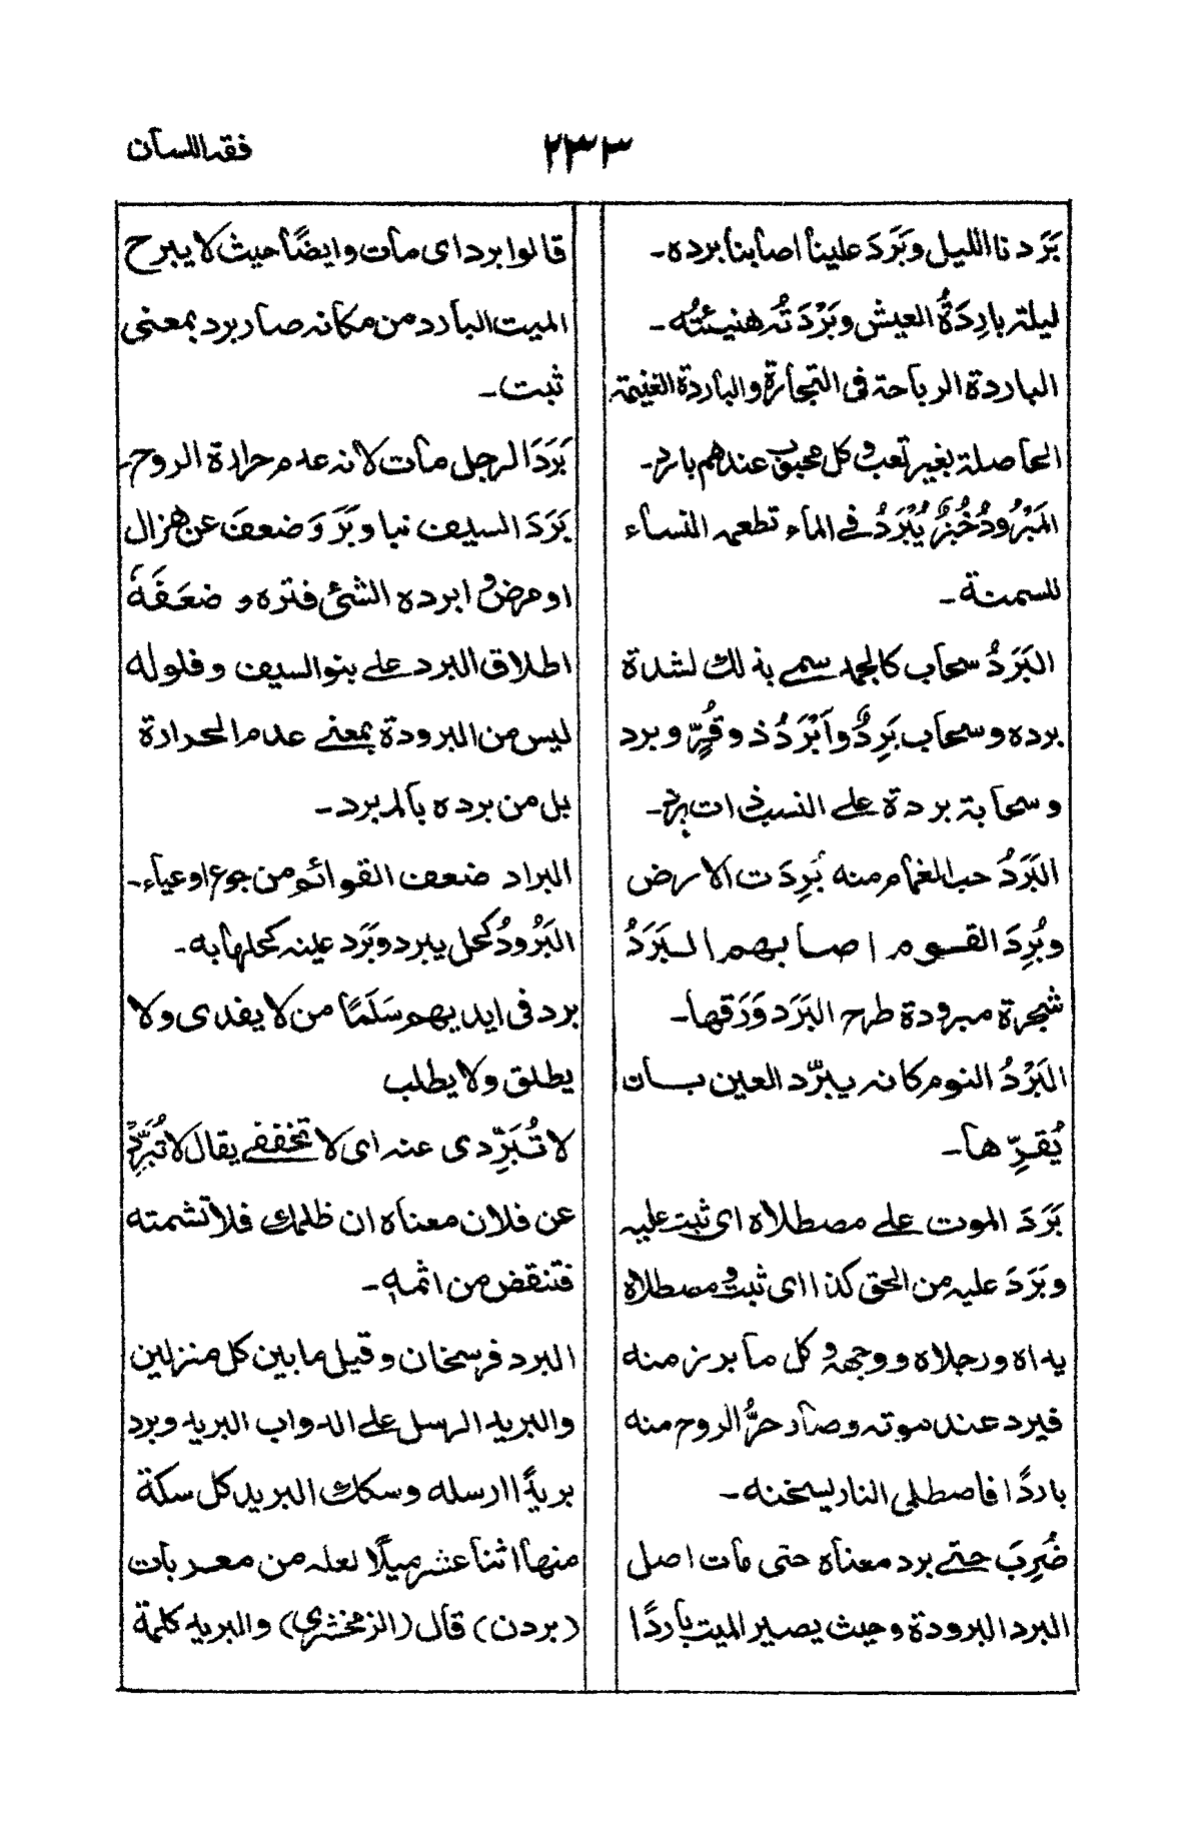 ٢٣٣
فقه اللسان
بَرَدنا الليل وبَرَدَ علينا اصابنا برده۔
ليلة بارِدَةُ العيش وبَرْدَتُه هنيئتُه۔
الباردة الرباحة فى التجارة والباردة الغنيمة
الحاصلة بغير تعب وكل محبوب عندهم بارد۔
المَبْرُودُ خُبْزٌ يُبْرَدُ فے الماء تطعمه النساء
للسمنة۔
البَرَدُ سحاب كالجمد سمے بذلك لشدة
برده وسحاب بَرِدٌ وأَبْرَدُ ذو قُرٍّ وبرد
وسحابة بردة علے النسب ذات برد۔
البَرَدُ حب الغمام منه بُرِدَت الارض
وبُرِدَ القوم اصابهم البَرَدُ
شجرة مبرودة طرح البَرَد وَرَقها۔
البَرْدُ النوم كانه يبرّد العين بسان
يُقرِّها۔
بَرَدَ الموت علے مصطلاه اى ثبت عليه
وبَرَدَ عليه من الحق كذا اى ثبت ومصطلاه
يداه ورجلاه ووجهه وكل ما برز منه
فيرد عند موته وصار حرُّ الروح منه
باردًا فاصطلى النار ليسخنه۔
ضُرِبَ حتے برد معناه حتى مات اصل
البرد البرودة وحيث يصير الميت باردًا
قالوا برد اى مات وايضًا حيث لا يبرح
الميت البارد من مكانه صار برد بمعنى
ثبت۔
بَرَدَ الرجل مات لانه عدم حرارة الروح۔
بَرَدَ السيف نبا وبَرَدَ ضعف عن هزال
او مرض وابرده الشئ فتره وضعَفَهٗ
اطلاق البرد علے بنو السيف وفلوله
ليس من البرودة بمعنے عدم الحرارة
بل من برده بالمبرد۔
البراد ضعف القوائم من جوع او عياء۔
البَرُودُ كحل يبرد وبَرَد عينه كحلها به۔
برد فى ايديهم سَلَمًا من لا يفدى ولا
يطلق ولا يطلب
لا تُبَرِّدى عنه اى لا تخففے يقال لا تُبَرِّدْ
عن فلان معناه ان ظلمك فلا تشمته
فتنقض من اثمه۔
البرد فرسخان وقيل ما بين كل منزلين
والبريد الرسل علے الدواب البريد وبرد
بريدًا ارسله وسكك البريد كل سكة
منها اثنا عشر ميلًا لعله من معربات
(بردن) قال (الزمخشرى) والبريد كلمة